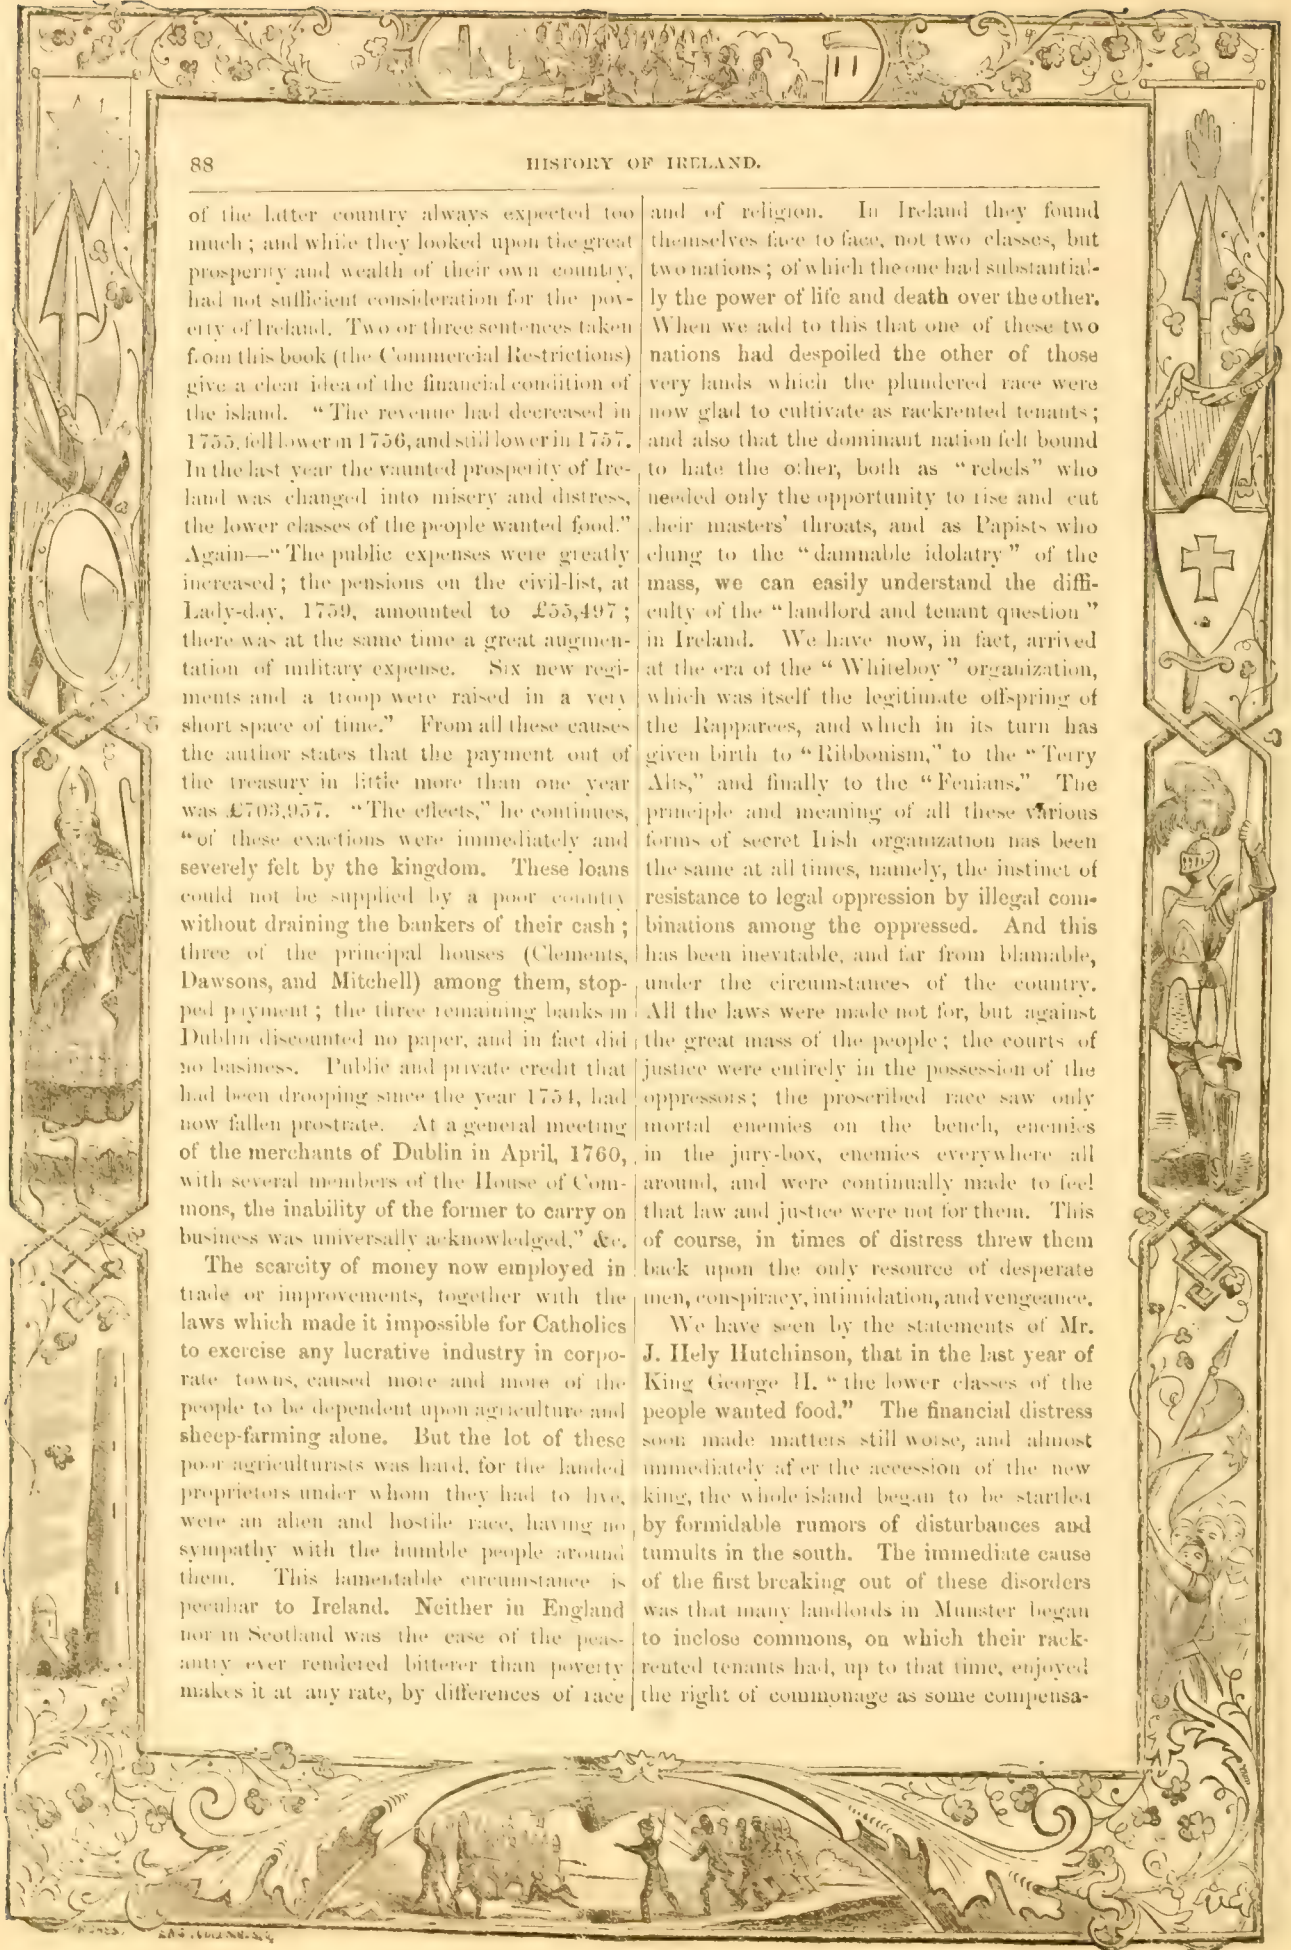 88
HISTORY OF IRELAND.
of the latter country always expected too
much; and while they looked upon the great
prosperity and wealth of their own country,
had not sufficient consideration for the pov-
erty of Ireland. Two or three sentences taken
from this book (the Commercial Restrictions)
give a clear idea of the financial condition of
the island. "The revenue had decreased in
1755, fell lower in 1756, and still lower in 1757.
In the last year the vaunted prosperity of Ire-
land was changed into misery and distress,
the lower classes of the people wanted food."
Again—"The public expenses were greatly
increased; the pensions on the civil-list, at
Lady-day, 1759, amounted to £55,497;
there was at the same time a great augmen-
tation of military expense. Six new regi-
ments and a troop were raised in a very
short space of time." From all these causes
the author states that the payment out of
the treasury in little more than one year
was £703,957. "The effects," he continues,
"of these exactions were immediately and
severely felt by the kingdom. These loans
could not be supplied by a poor country
without draining the bankers of their cash;
three of the principal houses (Clements,
Dawsons, and Mitchell) among them, stop-
ped payment; the three remaining banks in
Dublin discounted no paper, and in fact did
no business. Public and private credit that
had been drooping since the year 1754, had
now fallen prostrate. At a general meeting
of the merchants of Dublin in April, 1760,
with several members of the House of Com-
mons, the inability of the former to carry on
business was universally acknowledged," &c.
The scarcity of money now employed in
trade or improvements, together with the
laws which made it impossible for Catholics
to exercise any lucrative industry in corpo-
rate towns, caused more and more of the
people to be dependent upon agriculture and
sheep-farming alone. But the lot of these
poor agriculturists was hard, for the landed
proprietors under whom they had to live,
were an alien and hostile race, having no
sympathy with the humble people around
them. This lamentable circumstance is
peculiar to Ireland. Neither in England
nor in Scotland was the case of the peas-
antry ever rendered bitterer than poverty
makes it at any rate, by differences of race
and of religion. In Ireland they found
themselves face to face, not two classes, but
two nations; of which the one had substantial-
ly the power of life and death over the other.
When we add to this that one of these two
nations had despoiled the other of those
very lands which the plundered race were
now glad to cultivate as rackrented tenants;
and also that the dominant nation felt bound
to hate the other, both as "rebels" who
needed only the opportunity to rise and cut
their masters' throats, and as Papists who
clung to the "damnable idolatry" of the
mass, we can easily understand the diffi-
culty of the "landlord and tenant question"
in Ireland. We have now, in fact, arrived
at the era of the "Whiteboy" organization,
which was itself the legitimate offspring of
the Rapparees, and which in its turn has
given birth to "Ribbonism," to the "Terry
Alts," and finally to the "Fenians." The
principle and meaning of all these various
forms of secret Irish organization has been
the same at all times, namely, the instinct of
resistance to legal oppression by illegal com-
binations among the oppressed. And this
has been inevitable, and far from blamable,
under the circumstances of the country.
All the laws were made not for, but against
the great mass of the people; the courts of
justice were entirely in the possession of the
oppressors; the proscribed race saw only
mortal enemies on the bench, enemies
in the jury-box, enemies everywhere all
around, and were continually made to feel
that law and justice were not for them. This
of course, in times of distress threw them
back upon the only resource of desperate
men, conspiracy, intimidation, and vengeance.
We have seen by the statements of Mr.
J. Hely Hutchinson, that in the last year of
King George II. "the lower classes of the
people wanted food." The financial distress
soon made matters still worse, and almost
immediately after the accession of the new
king, the whole island began to be startled
by formidable rumors of disturbances and
tumults in the south. The immediate cause
of the first breaking out of these disorders
was that many landlords in Munster began
to inclose commons, on which their rack-
rented tenants had, up to that time, enjoyed
the right of commonage as some compensa-